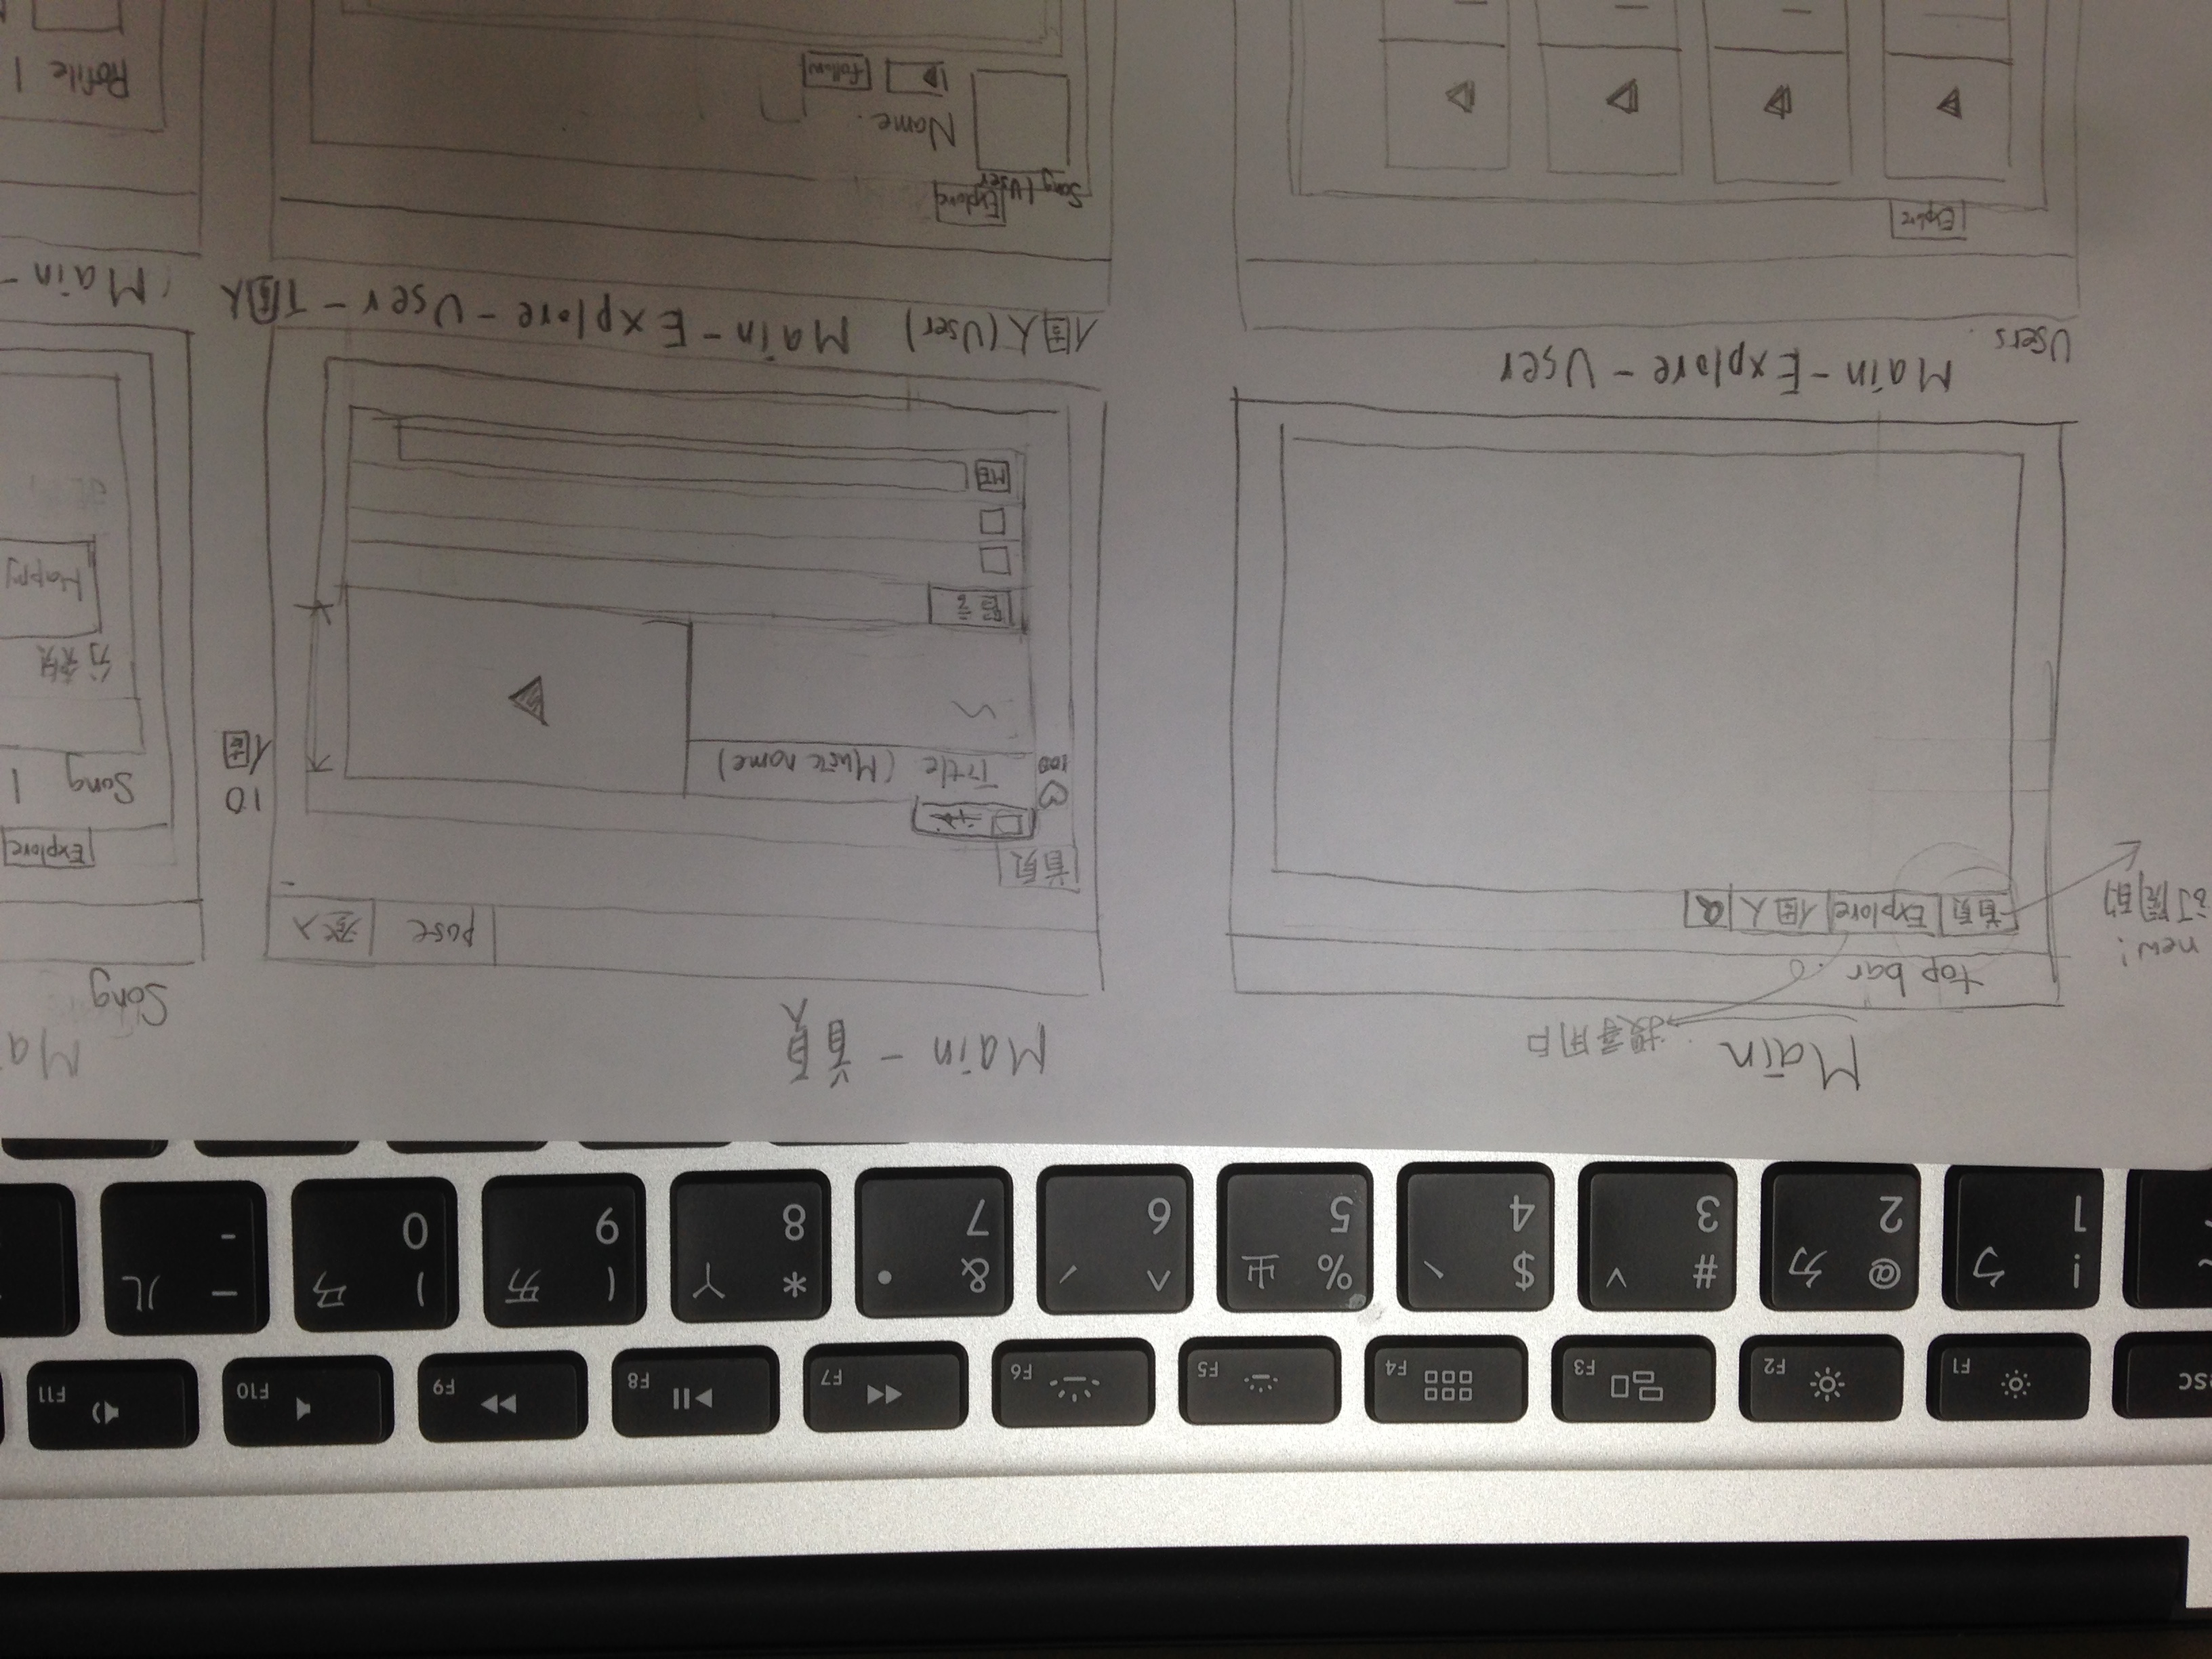 esc F1 F2 F3 F4 F5 F6 F7 F8 F9 F10 F11
! ㄅ @ ㄉ # ˇ $ ˋ % ㄓ ^ ˊ & ˙ * ㄚ ( ㄞ ) ㄢ — ㄦ
1 2 3 4 5 6 7 8 9 0 -
Main
搜尋用戶
top bar
new!
訂閱的
首頁 Explore 個人
Main - 首頁
post 登入
首頁
100
Title (Music name)
10
個
留言
ME
Song
Explore
Song |
分類
Happy
Main - Explore - User
Users
Explore
個人(User) Main - Explore - User - 個人
Song / User Explore
Name
follow
Main -
Profile |